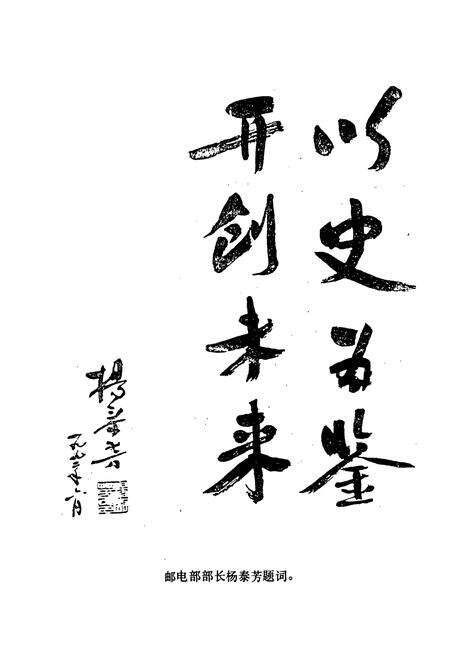 以史为鉴
开创未来
杨泰芳
一九九二年六月
邮电部部长杨泰芳题词。